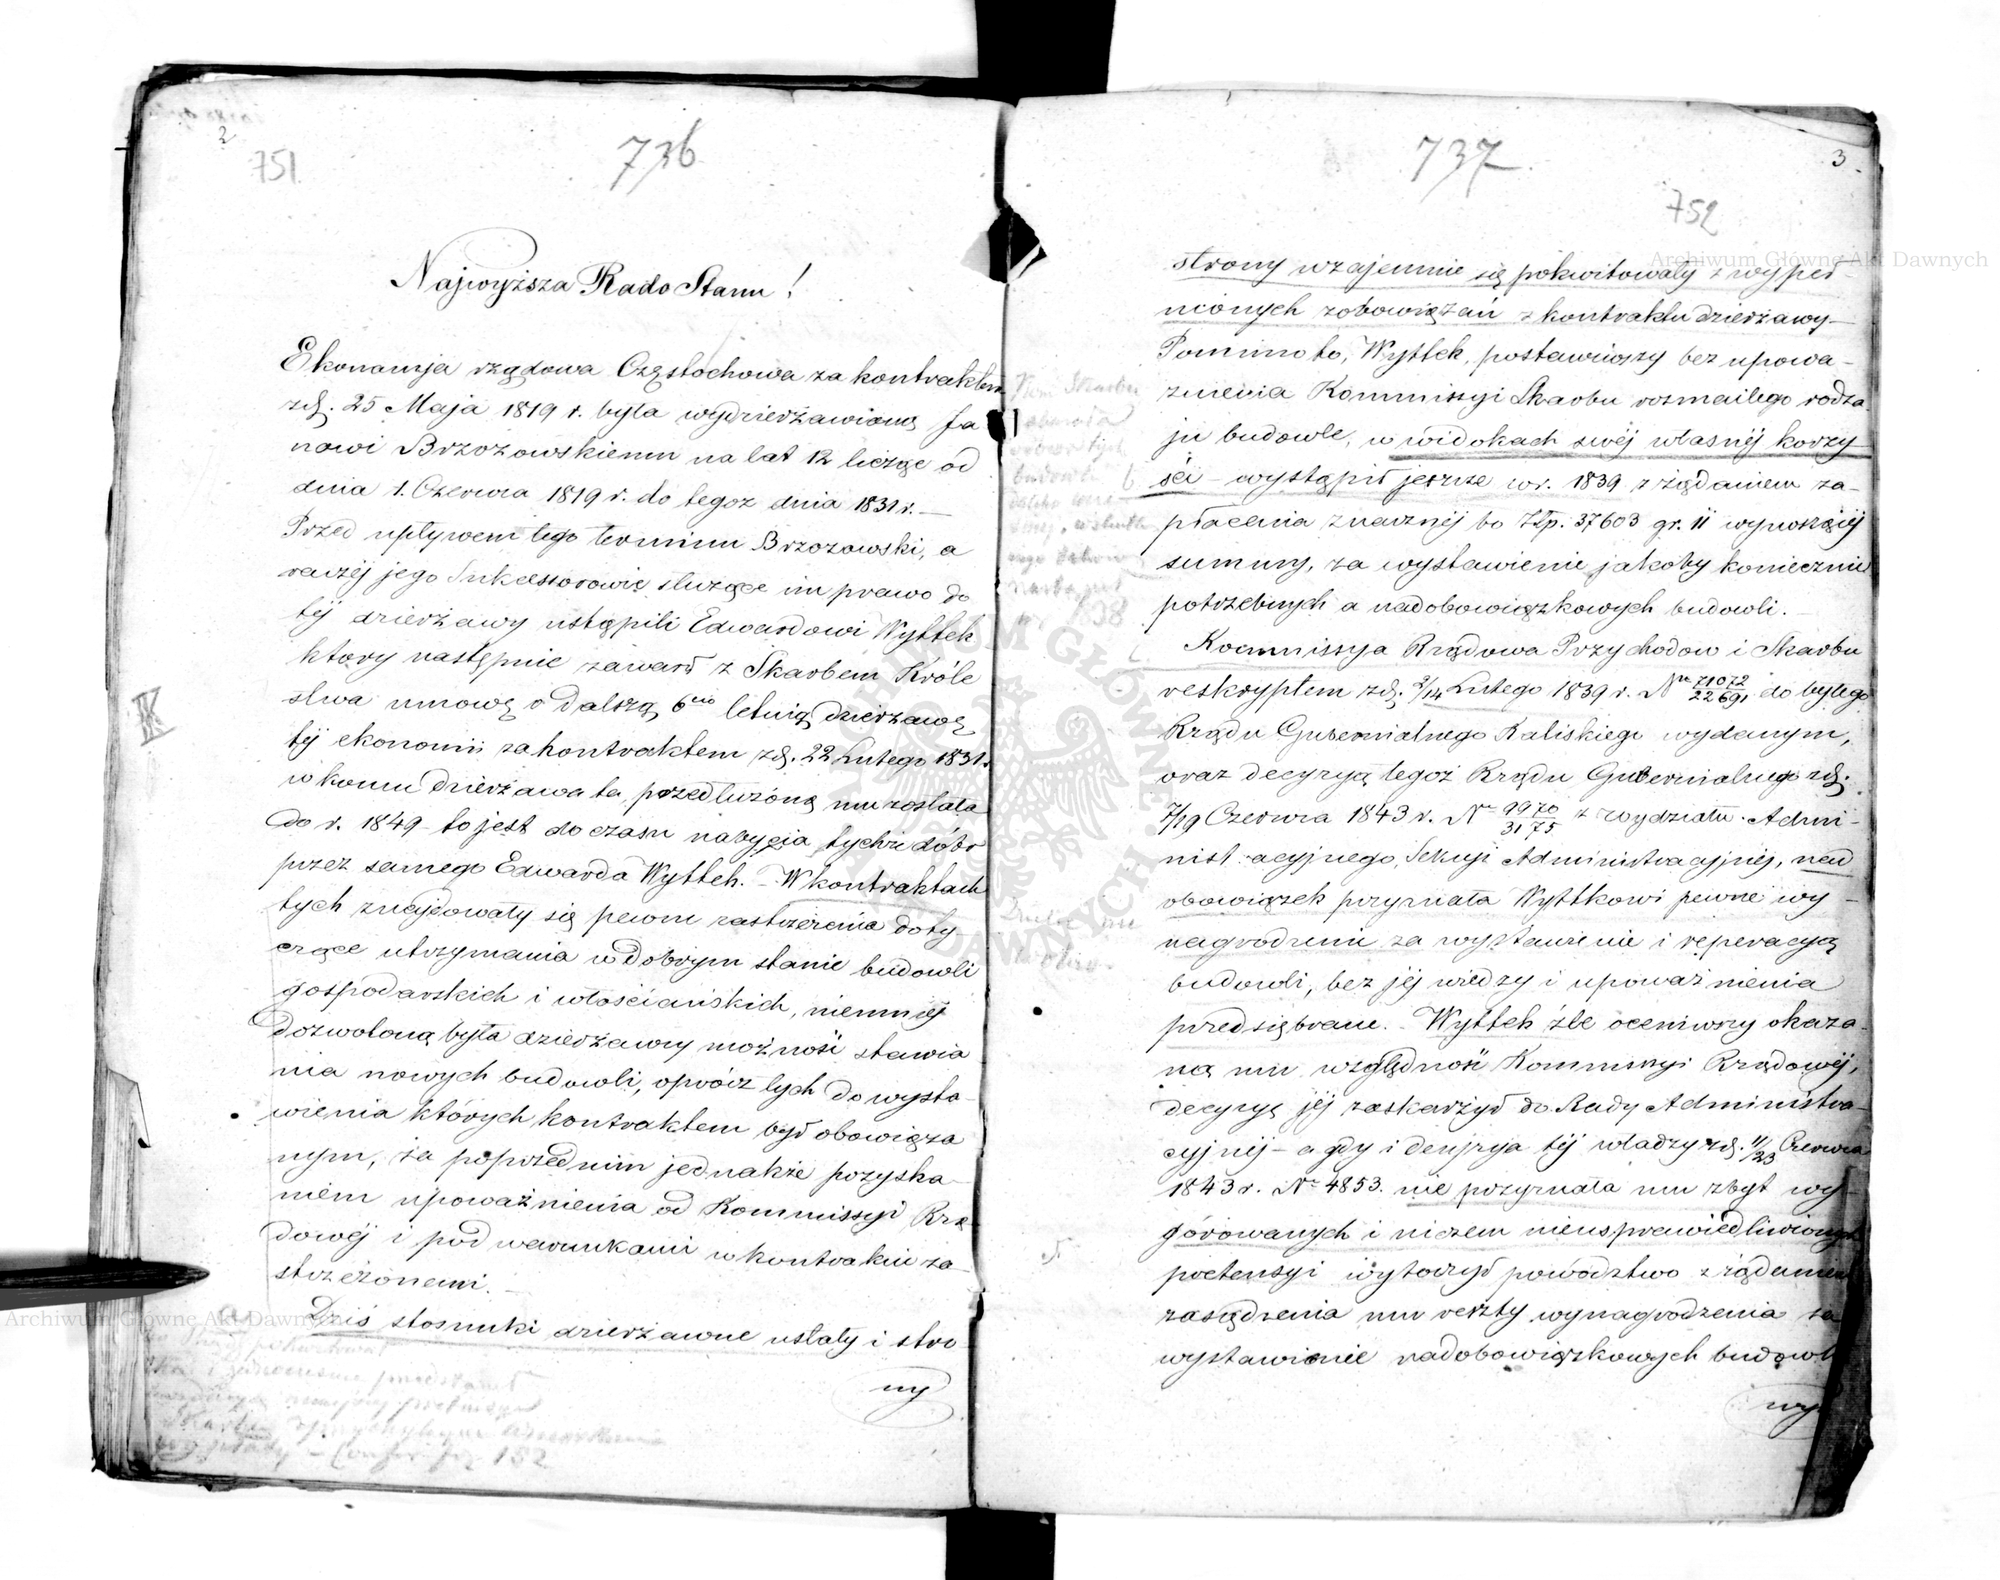 2
751.
736
Najwyższa Rado Stanu!
Ekonomja rządowa Częstochowa za kontraktem
zd. 25 Maja 1819 r. była wydzierżawioną Ja
nowi Brzozowskiemu na lat 12 licząc od
dnia 1. Czerwca 1819 r. do tegoż dnia 1831 r. —
Przed upływem tego terminu Brzozowski, a
raczéj jego Sukcessorowie służące im prawo do
téj dzierżawy ustąpili Edwardowi Wyttek
ktory następnie zawarł z Skarbem Króle
stwa umowę o dalszą 6cio letnią dzierżawę
téj ekonomii za kontraktem zd. 22 Lutego 1831 r.
w koncu dzierżawa ta, przedłużoną mu została
do r. 1849 - to jest do czasu nabycia tychże dóbr
przez samego Edwarda Wyttek. - W kontraktach
tych znajdowały się pewne zastrzeżenia doty
czące utrzymania w dobrym stanie budowli
gospodarskich i włościańskich, niemniéj
dozwoloną była dzierżawcy możność stawia
nia nowych budowli, oprócz tych do wysta-
wienia których kontraktem był obowiąza
nym, za poprzednim jednakże pozyska-
niem upoważnienia od Kommissyi Rzą-
dowéj i pod warunkami w kontrakcie za-
strzeżonemi. —
Dziś stosunki dzierżawne ustały i stro-
ny
Confer. 152
737
3.
752
strony wzajemnie się pokwitowały z wypeł-
nionych zobowiązań z kontraktu dzierżawy —
Pomimo to, Wyttek, postawiwszy bez upowa-
żnienia Kommissyi Skarbu rozmaitego rodza
ju budowle, w widokach swéj własnéj korzy
ści - wystąpił jeszcze w r. 1839 z żądaniem za-
płacenia znacznéj bo Złp. 37603 gr. 11 wynoszącéj
summy, za wystawienie jakoby koniecznie
potrzebnych a nadobowiązkowych budowli. —
Kommissya Rządowa Przychodow i Skarbu
reskryptem zd. 2/14 Lutego 1839 r. Nr 71072/22691 do byłego
Rządu Gubernialnego Kaliskiego wydanym,
oraz decyzyą tegoż Rządu Gubernialnego zd.
7/19 Czerwca 1843 r. Nr 9970/3175 z Wydziału Admi-
nistracyjnego, Sekcyi Administracyjnéj, nad
obowiązek przyznała Wyttkowi pewne wy-
nagrodzenie za wystawienie i reperacyą
budowli, bez jéj wiedzy i upoważnienia
przedsiębrane. - Wyttek źle oceniwszy okaza-
ną mu względność Kommissyi Rządowéj,
decyzyę jéj zaskarżył do Rady Administra-
cyjnéj - a gdy i decyzya téj władzy zd. 11/23 Czerwca
1843 r. Nr 4853. nie przyznała mu zbyt wy-
górowanych i niczem nieusprawiedliwionych
pretensyi wytoczył powództwo z żądaniem
zasądzenia mu reszty wynagrodzenia za
wystawienie nadobowiązkowych budowli
wy
Archiwum Główne Akt Dawnych
Archiwum Główne Akt Dawnych
ARCHIWUM GŁÓWNE AKT DAWNYCH